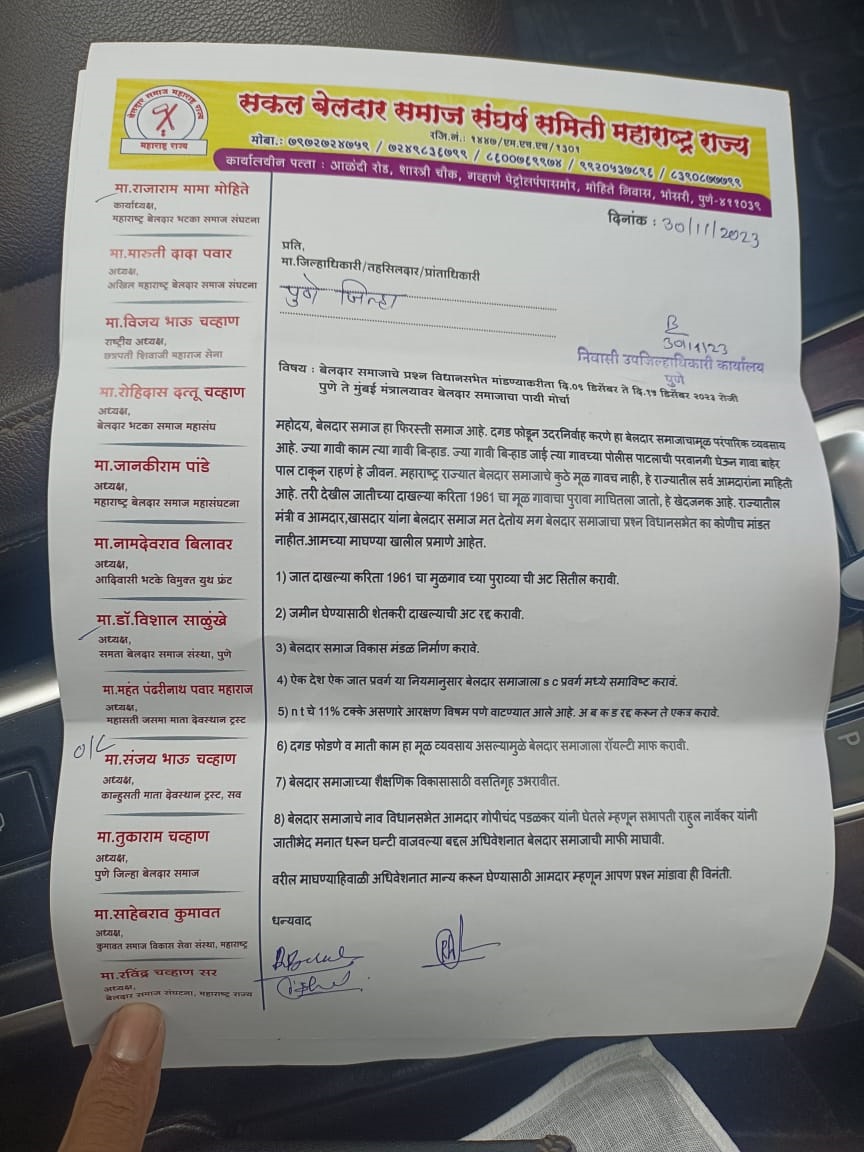 बेलदार समाज महाराष्ट्र राज्य
महाराष्ट्र राज्य
सकल बेलदार समाज संघर्ष समिती महाराष्ट्र राज्य
रजि.नं.: १४४७/एम.एच.एच/१३०१
मोबा.: ७९७२७२४७५९ / ७२४९८३६७९९ / ८६००७६९९७४ / ९९२०५३७८९६ / ८३९०८७७७९९
कार्यालयीन पत्ता : आळंदी रोड, शास्त्री चौक, गव्हाणे पेट्रोलपंपासमोर, मोहिते निवास, भोसरी, पुणे-४११०३९
दिनांक : 30/11/2023
मा.राजाराम मामा मोहिते
कार्याध्यक्ष,
महाराष्ट्र बेलदार भटका समाज संघटना
मा.मारुती दादा पवार
अध्यक्ष,
अखिल महाराष्ट्र बेलदार समाज संघटना
मा.विजय भाऊ चव्हाण
राष्ट्रीय अध्यक्ष,
छत्रपती शिवाजी महाराज सेना
मा.रोहिदास दत्तू चव्हाण
अध्यक्ष,
बेलदार भटका समाज महासंघ
मा.जानकीराम पांडे
अध्यक्ष,
महाराष्ट्र बेलदार समाज महासंघटना
मा.नामदेवराव बिलावर
अध्यक्ष,
आदिवासी भटके विमुक्त युथ फ्रंट
मा.डॉ.विशाल साळुंखे
अध्यक्ष,
समता बेलदार समाज संस्था, पुणे
मा.महंत पंढरीनाथ पवार महाराज
अध्यक्ष,
महासती जसमा माता देवस्थान ट्रस्ट
O/C
मा.संजय भाऊ चव्हाण
अध्यक्ष,
कान्हुसती माता देवस्थान ट्रस्ट, सव
मा.तुकाराम चव्हाण
अध्यक्ष,
पुणे जिल्हा बेलदार समाज
मा.साहेबराव कुमावत
अध्यक्ष,
कुमावत समाज विकास सेवा संस्था, महाराष्ट्र
मा.रविंद्र चव्हाण सर
अध्यक्ष,
बेलदार समाज संघटना, महाराष्ट्र राज्य
प्रति,
मा.जिल्हाधिकारी/तहसिलदार/प्रांताधिकारी
पुणे जिल्हा
30/11/23
निवासी उपजिल्हाधिकारी कार्यालय
पुणे
विषय : बेलदार समाजाचे प्रश्न विधानसभेत मांडण्याकरीता दि.०९ डिसेंबर ते दि.१५ डिसेंबर २०२३ रोजी
पुणे ते मुंबई मंत्रालयावर बेलदार समाजाचा पायी मोर्चा
महोदय, बेलदार समाज हा फिरस्ती समाज आहे. दगड फोडून उदरनिर्वाह करणे हा बेलदार समाजाचामूळ परंपारिक व्यवसाय
आहे. ज्या गावी काम त्या गावी बिऱ्हाड. ज्या गावी बिऱ्हाड जाई त्या गावच्या पोलीस पाटलाची परवानगी घेऊन गावा बाहेर
पाल टाकून राहणं हे जीवन. महाराष्ट्र राज्यात बेलदार समाजाचे कुठे मूळ गावच नाही, हे राज्यातील सर्व आमदारांना माहिती
आहे. तरी देखील जातीच्या दाखल्या करिता 1961 चा मूळ गावाचा पुरावा माचितला जातो, हे खेदजनक आहे. राज्यातील
मंत्री व आमदार,खासदार यांना बेलदार समाज मत देतोय मग बेलदार समाजाचा प्रश्न विधानसभेत का कोणीच मांडत
नाहीत.आमच्या माघण्या खालील प्रमाणे आहेत.
1) जात दाखल्या करिता 1961 चा मुळगाव च्या पुराव्या ची अट सितील करावी.
2) जमीन घेण्यासाठी शेतकरी दाखल्याची अट रद्द करावी.
3) बेलदार समाज विकास मंडळ निर्माण करावे.
4) ऐक देश ऐक जात प्रवर्ग या नियमानुसार बेलदार समाजाला s c प्रवर्ग मध्ये समाविष्ट करावं.
5) n t चे 11% टक्के असणारे आरक्षण विषम पणे वाटण्यात आले आहे. अ ब क ड रद्द करून ते एकत्र करावे.
6) दगड फोडणे व माती काम हा मूळ व्यवसाय असल्यामुळे बेलदार समाजाला रॉयल्टी माफ करावी.
7) बेलदार समाजाच्या शैक्षणिक विकासासाठी वसतिगृह उभरावीत.
8) बेलदार समाजाचे नाव विधानसभेत आमदार गोपीचंद पडळकर यांनी घेतले म्हणून सभापती राहुल नार्वेकर यांनी
जातीभेद मनात धरून घन्टी वाजवल्या बद्दल अधिवेशनात बेलदार समाजाची माफी माघावी.
वरील माघण्याहिवाळी अधिवेशनात मान्य करून घेण्यासाठी आमदार म्हणून आपण प्रश्न मांडावा ही विनंती.
धन्यवाद